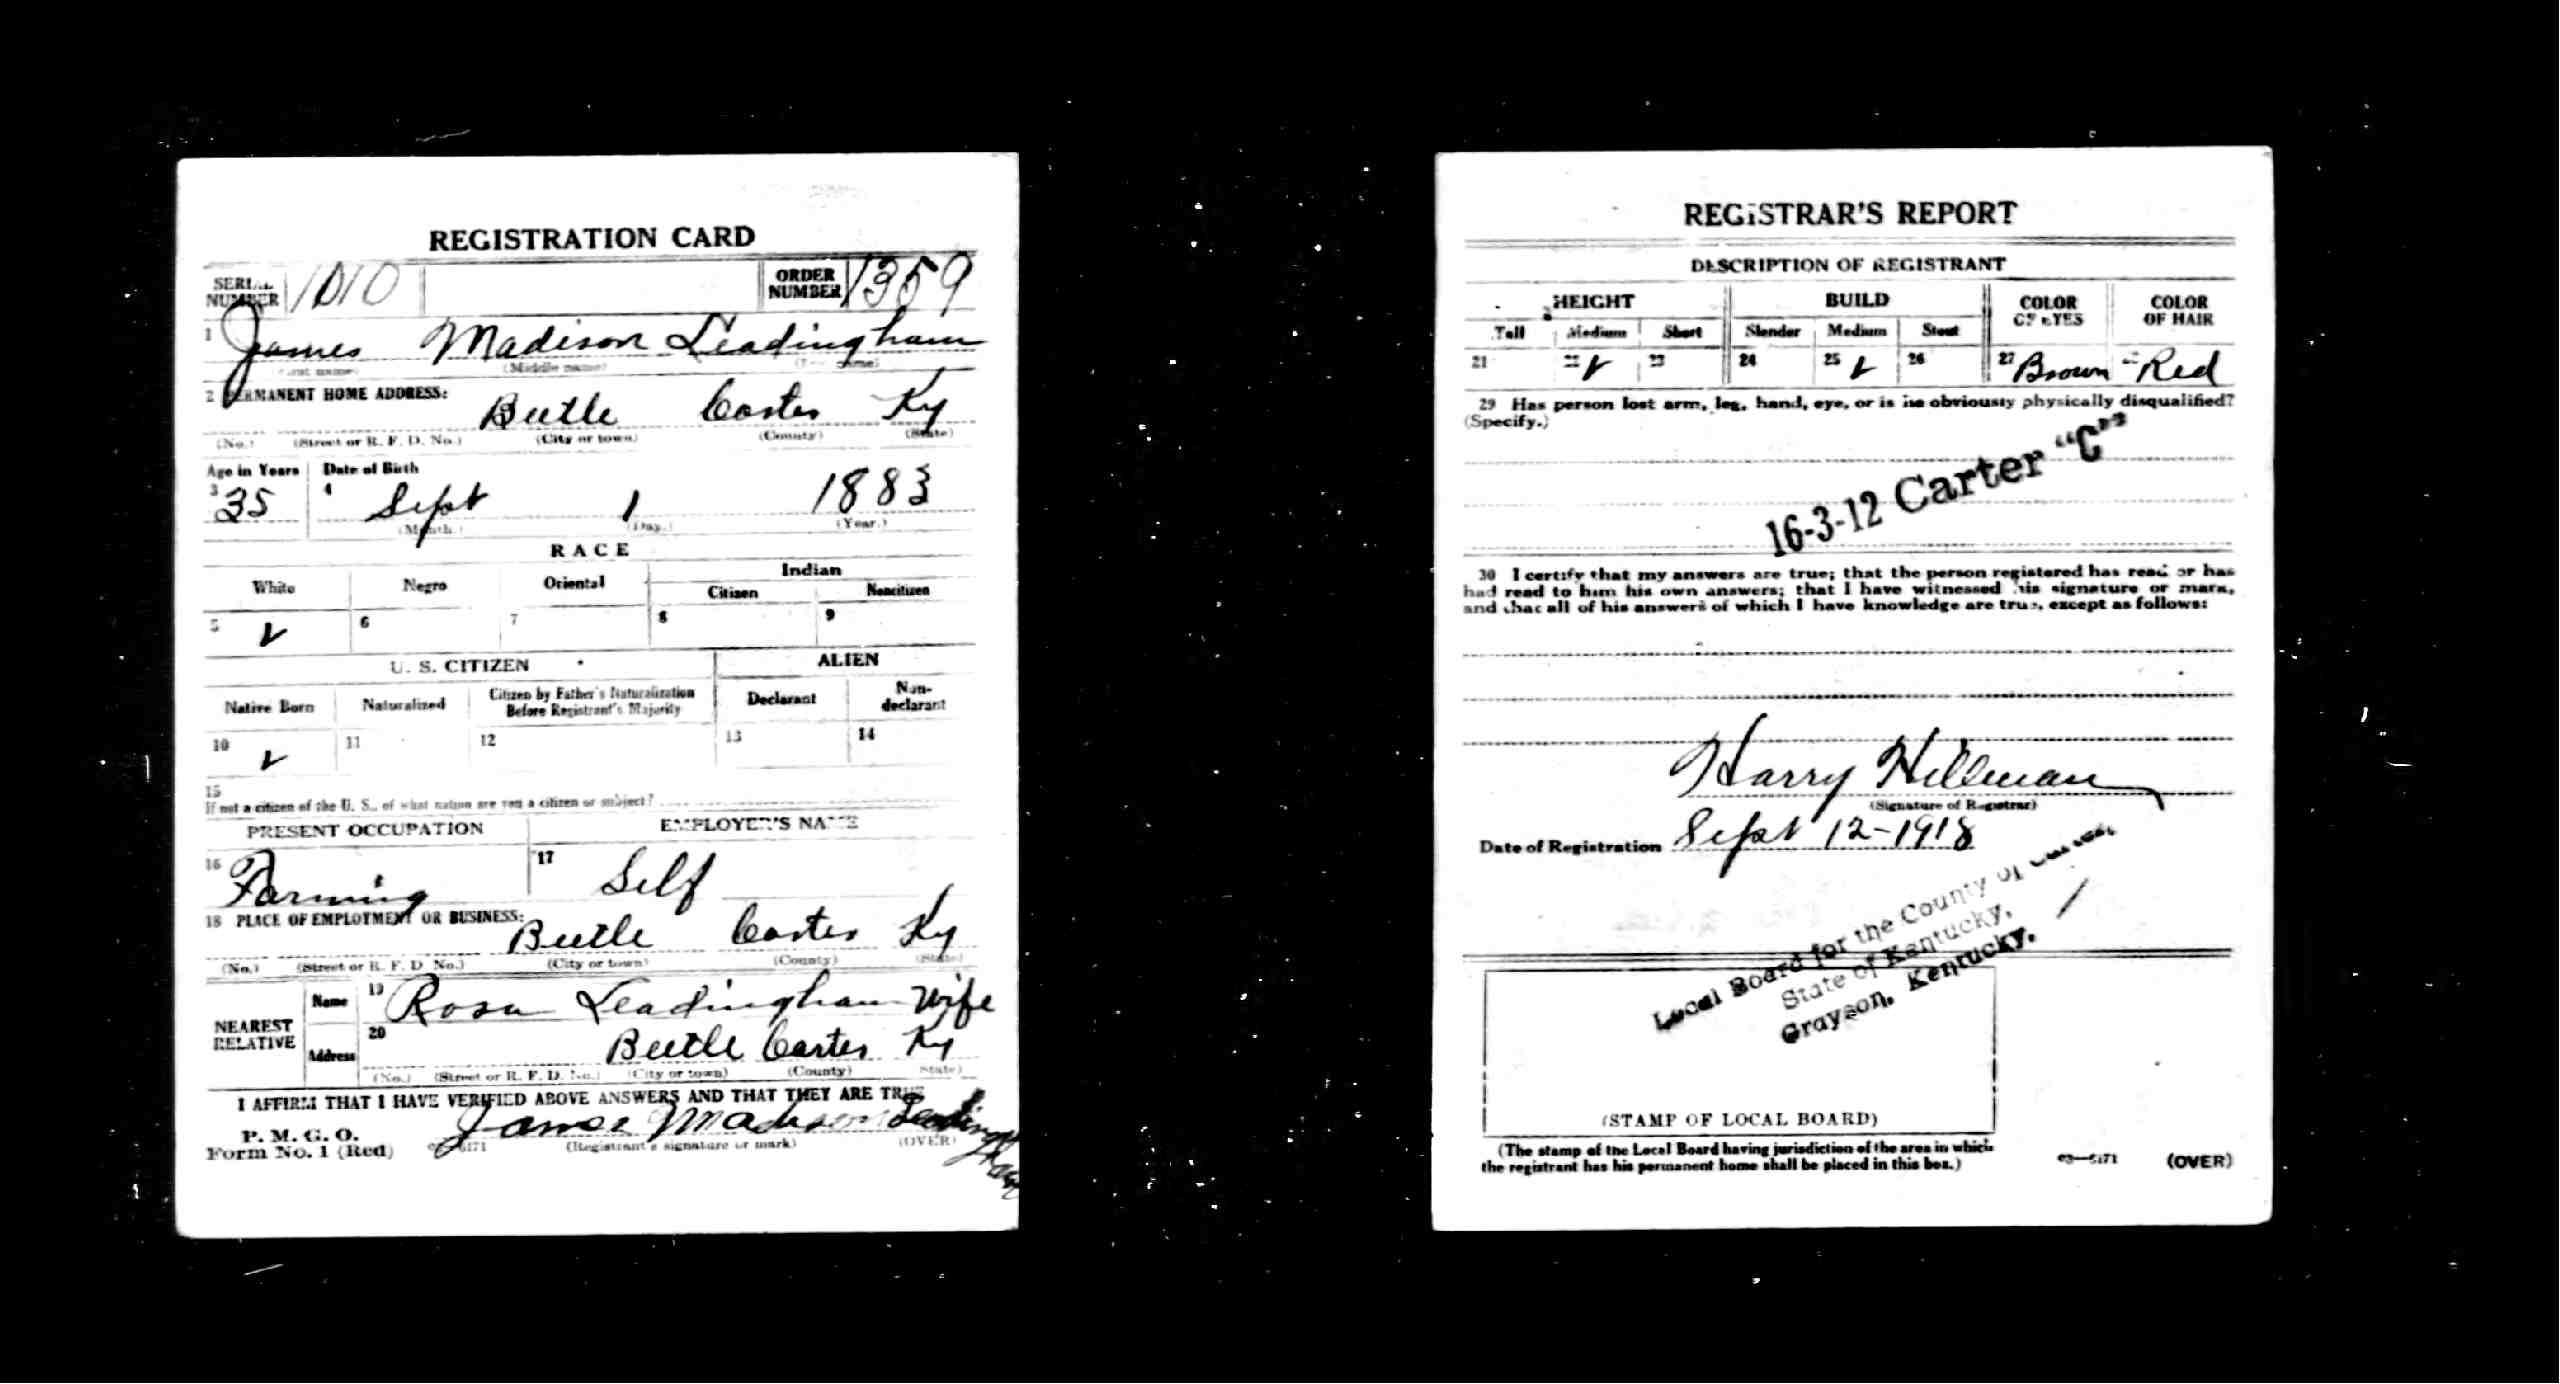 REGISTRATION CARD
SERIAL NUMBER 1010 ORDER NUMBER 1359
1 James Madison Leadingham
(First name) (Middle name) (Last name)
2 PERMANENT HOME ADDRESS:
Beetle Carter Ky
(No.) (Street or R. F. D. No.) (City or town) (County) (State)
Age in Years Date of Birth
3 35 4 Sept 1 1883
(Month.) (Day.) (Year.)
RACE
White Negro Oriental Indian
Citizen Noncitizen
5 ✓ 6 7 8 9
U. S. CITIZEN ALIEN
Native Born Naturalized Citizen by Father's Naturalization Before Registrant's Majority Declarant Non-declarant
10 ✓ 11 12 13 14
15
If not a citizen of the U. S., of what nation are you a citizen or subject?
PRESENT OCCUPATION EMPLOYER'S NAME
16 Farming 17 Self
18 PLACE OF EMPLOYMENT OR BUSINESS:
Beetle Carter Ky
(No.) (Street or R. F. D. No.) (City or town) (County) (State)
NEAREST RELATIVE Name 19 Rosa Leadingham Wife
Address 20 Beetle Carter Ky
(No.) (Street or R. F. D. No.) (City or town) (County) (State)
I AFFIRM THAT I HAVE VERIFIED ABOVE ANSWERS AND THAT THEY ARE TRUE
P. M. G. O.
Form No. 1 (Red) James Madison Leadingham
(Registrant's signature or mark) (OVER)
REGISTRAR'S REPORT
DESCRIPTION OF REGISTRANT
HEIGHT BUILD COLOR OF EYES COLOR OF HAIR
Tall Medium Short Slender Medium Stout
21 22 ✓ 23 24 25 ✓ 26 27 Brown 28 Red
29 Has person lost arm, leg, hand, eye, or is he obviously physically disqualified?
(Specify.)
16-3-12 Carter "C"
30 I certify that my answers are true; that the person registered has read or has
had read to him his own answers; that I have witnessed his signature or mark,
and that all of his answers of which I have knowledge are true, except as follows:
Harry Hillman
(Signature of Registrar)
Date of Registration Sept 12-1918
Local Board for the County of Carter,
State of Kentucky,
Grayson, Kentucky.
(STAMP OF LOCAL BOARD)
(The stamp of the Local Board having jurisdiction of the area in which
the registrant has his permanent home shall be placed in this box.)
03—6171 (OVER)